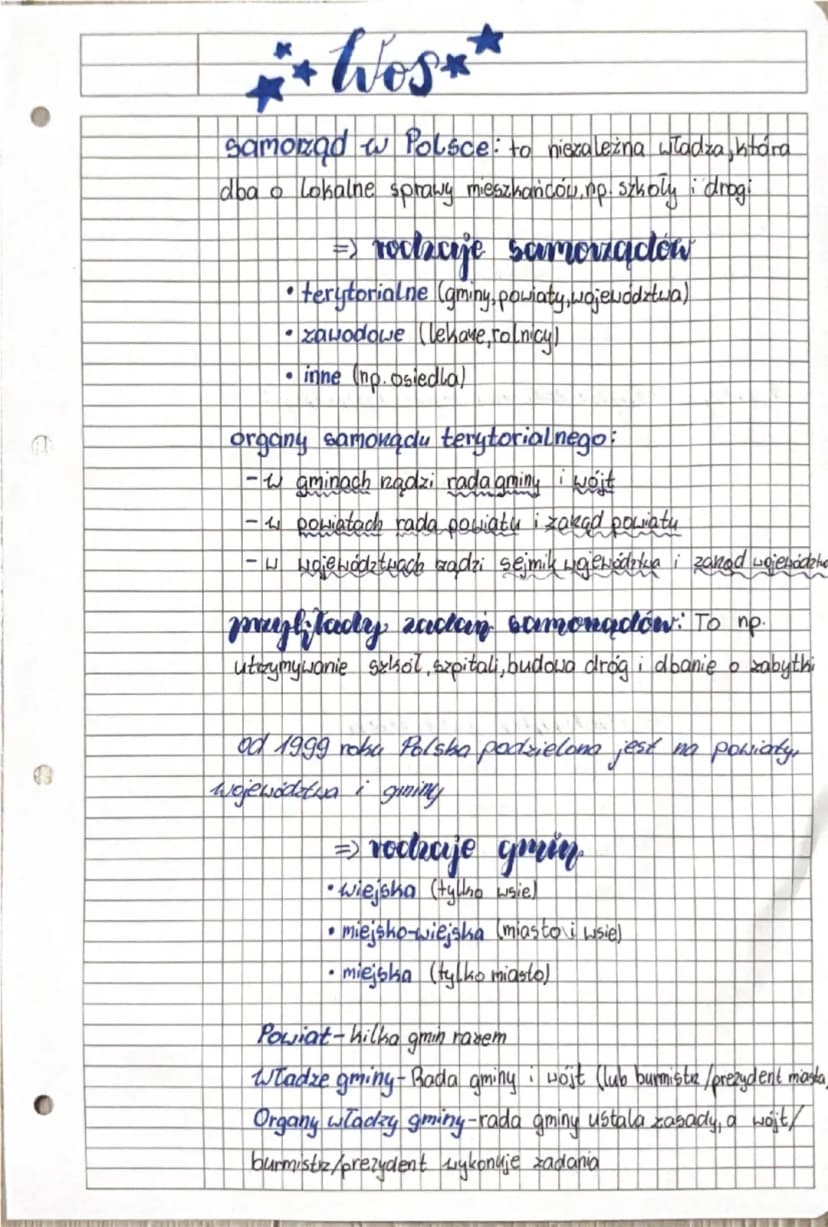 Wos
samorząd w Polsce: to niezależna władza, która
dba o lokalne sprawy mieszkańców, np. szkoły i drogi
=> rodzaje samorządów
• terytorialne (gminy, powiaty, województwa)
• zawodowe (lekarze, rolnicy)
• inne (np. osiedla)
organy samorządu terytorialnego:
- w gminach rządzi rada gminy i wójt
- w powiatach rada powiatu i zarząd powiatu
- w województwach rządzi sejmik województwa i zarząd województwa
przykłady zadań samorządów: To np.
utrzymywanie szkół, szpitali, budowa dróg i dbanie o zabytki
od 1999 roku Polska podzielona jest na powiaty,
województwa i gminy
=> rodzaje gmin
• wiejska (tylko wsie)
• miejsko-wiejska (miasto i wsie)
• miejska (tylko miasto)
Powiat - kilka gmin razem
Władze gminy - Rada gminy i wójt (lub burmistrz/prezydent miasta
Organy władzy gminy - rada gminy ustala zasady, a wójt/
burmistrz/prezydent wykonuje zadania